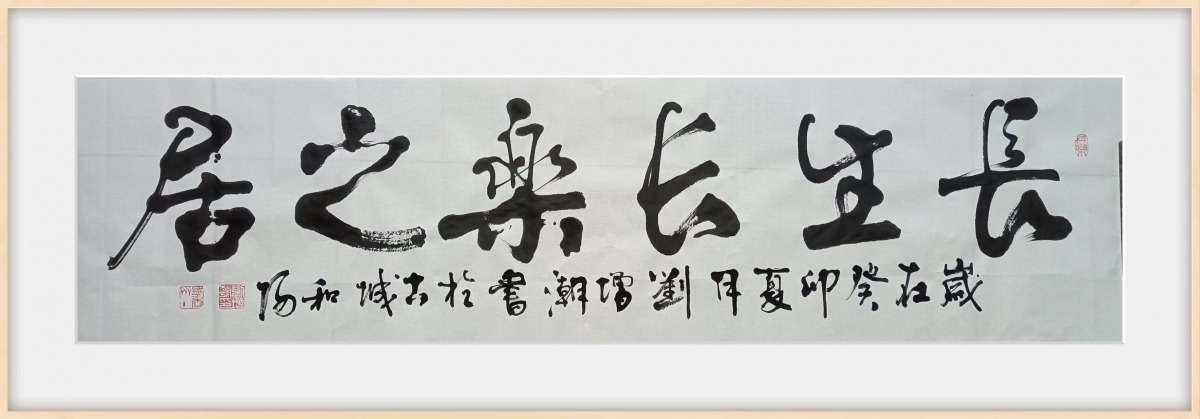 長生长樂之居
歲在癸卯夏月劉增潮書於古城和陽